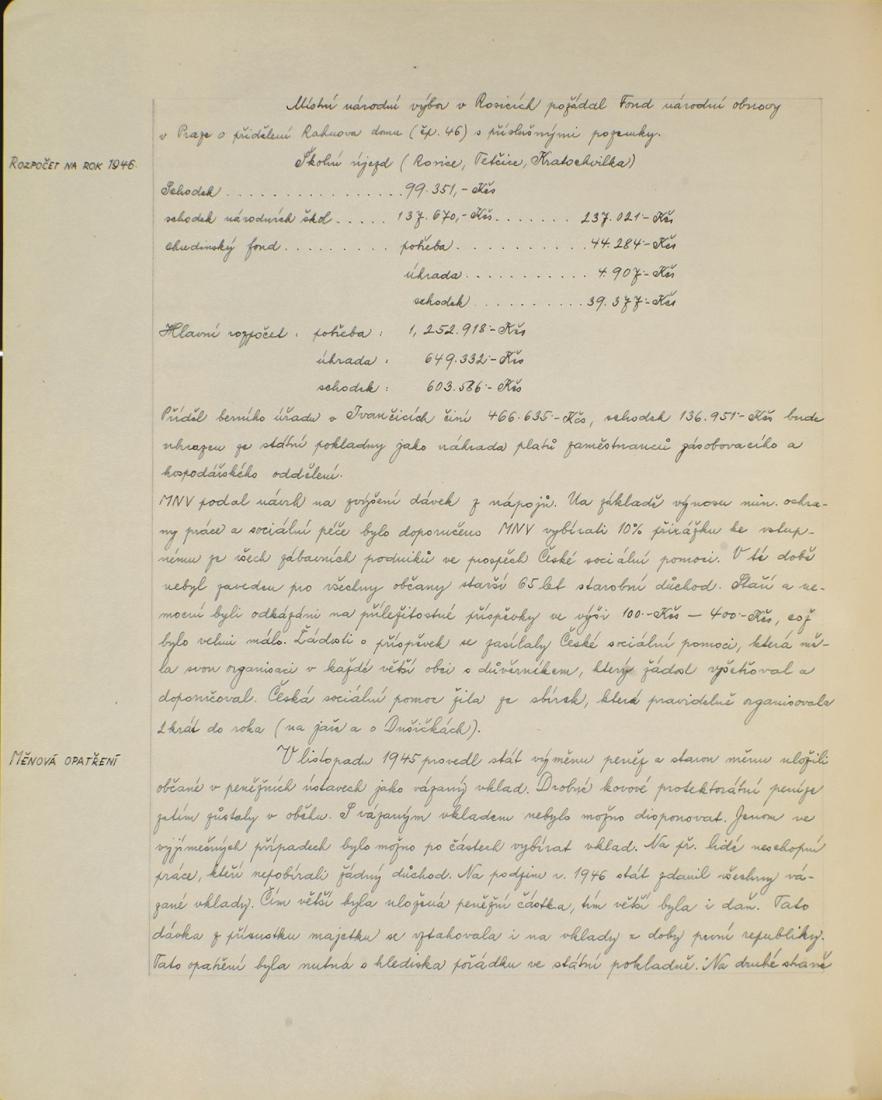 Místní národní výbor v Rosicích požádal Fond národní obnovy
v Praze o přidělení Rahnova domu (čp. 46) s příslušnými pozemky.
ROZPOČET NA ROK 1946.
Školní újezd (Rosice, Tetčice, Kratochvilka)
Schodek . . . . . . . . . . . . . . . . 99.351,- Kčs
schodek národních škol . . . . . 137.670,- Kčs . . . . . . . 237.021·- Kčs
chudinský fond . . . . . . . . . . potřeba . . . . . . . . . . . 44.284·- Kčs
úhrada . . . . . . . . . . . 4.907·- Kčs
schodek . . . . . . . . . . 39.377·- Kčs
Hlavní rozpočet : potřeba : 1,252.918·- Kčs
úhrada : 649.332·- Kčs
schodek : 603.586·- Kčs
Příděl berního úřadu v Ivančicích činí 466.635·- Kčs, schodek 136.951·- Kčs bude
uhrazen ze státní pokladny jako náhrada platů zaměstnanců zásobovacího a
hospodářského oddělení.
MNV podal návrh na zvýšení dávek z nápojů. Na základě výnosu min. ochra-
ny práce a sociální péče bylo doporučeno MNV vybírati 10% přirážku ke vstup-
nému ze všech zábavních podniků ve prospěch České sociální pomoci. V té době
nebyl zaveden pro všechny občany starší 65 let starobní důchod. Staří a ne-
mocní byli odkázáni na příležitostné příspěvky ve výši 100·- Kčs — 400·- Kčs, což
bylo velmi málo. Žádosti o příspěvek se zasílaly České sociální pomoci, která mě-
la svou organisaci v každé větší obci s důvěrníkem, který žádost vyšetřoval a
doporučoval. Česká sociální pomoc žila ze sbírek, které pravidelně organisovala
2krát do roka (na jaře a o Dušičkách).
MĚNOVÁ OPATŘENÍ
V listopadu 1945 provedl stát výměnu peněz a starou měnu uložili
občané v peněžních ústavech jako vázaný vklad. Drobné kovové protektorátní peníze
zatím zůstaly v oběhu. S vázaným vkladem nebylo možno disponovat. Jenom ve
vyjímečných případech bylo možno po částech vybírat vklad. Na př. lidé neschopní
práce, kteří nepobírali žádný důchod. Na podzim r. 1946 stát zdanil všechny vá-
zané vklady. Čím větší byla uložená peněžní částka, tím větší byla i daň. Tato
dávka z přírustku majetku se vztahovala i na vklady z doby první republiky.
Tato opatření byla nutná s hlediska pořádku ve státní pokladně. Na druhé straně